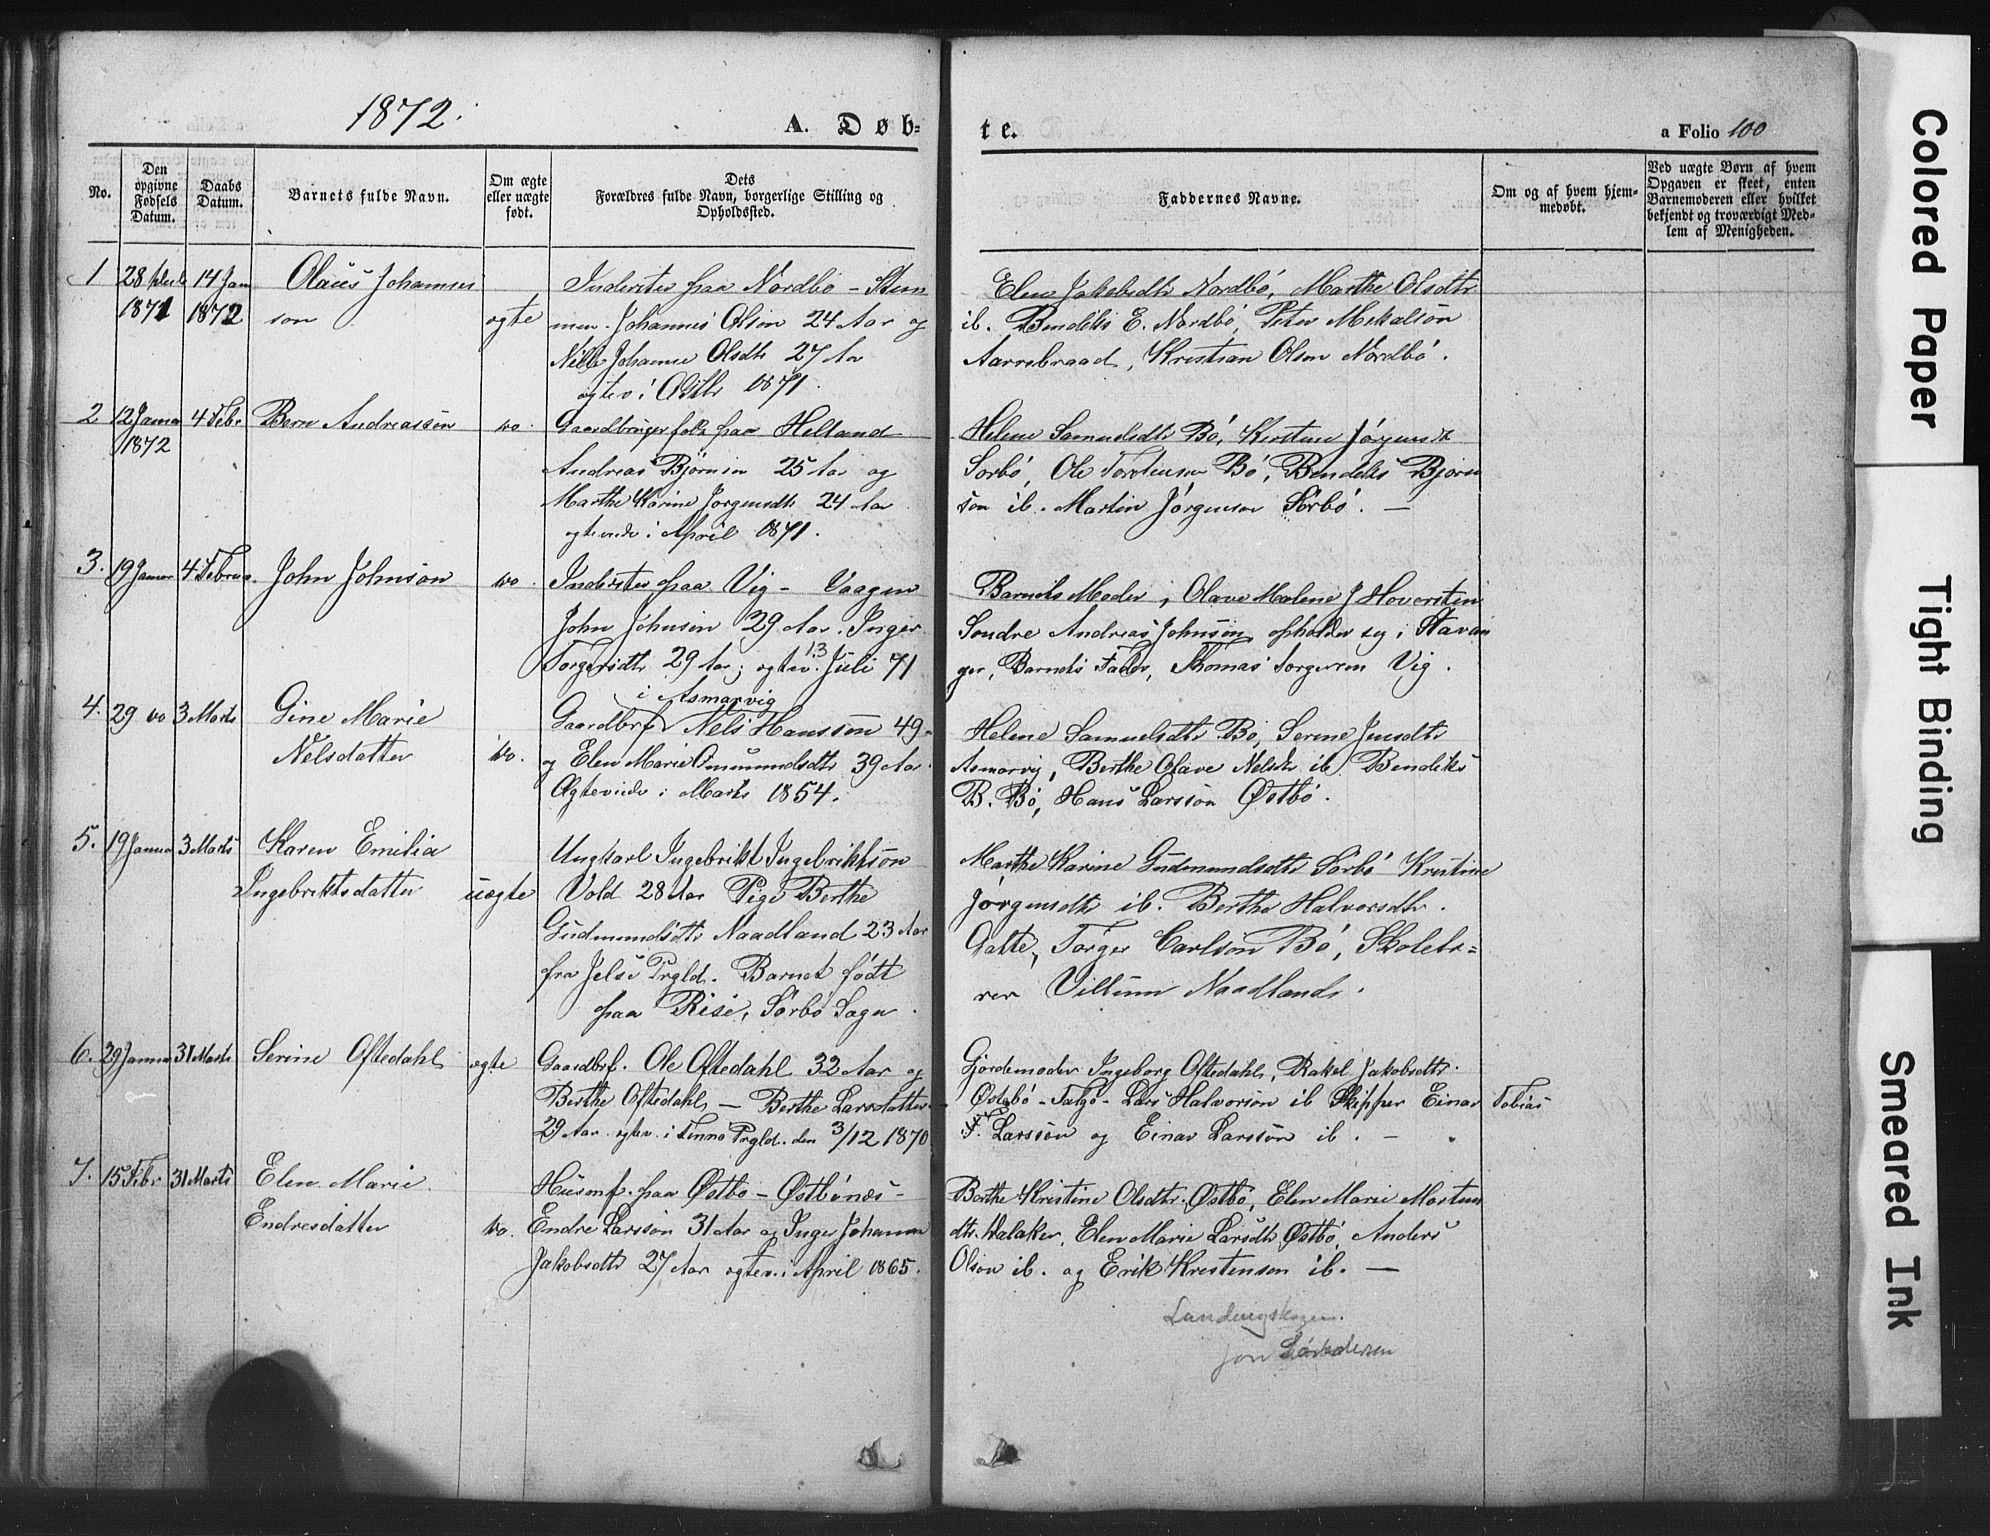 1872.
A. Døb=
te.
a Folio 100
No.
Den opgivne Fødsels Datum.
Daabs Datum.
Barnets fulde Navn.
Om ægte eller uægte født.
Dets Forældres fulde Navn, borgerlige Stilling og Opholdssted.
Faddernes Navne.
Om og af hvem hjemmedøbt.
Ved uægte Børn af hvem Opgaven er skeet, enten Barnemoderen eller hvilket bekjendt og troværdigt Medlem af Menigheden.
1 28 14 Jan Olaus Johannes
1871 1872 son ægte
Inderster paa Nordbø -
men. Johannes Olson 24 Aar og
Nille Johanne Olsdtr 27 Aar
ægtev. i Oktbr 1871.
Elen Jakobsdtr Nordbø, Marthe Olsdtr
ib. Bendiks E. Nordbø, Peter Mekalson
Aarrebraad, Kristian Olsen Nordbø.
2 12 Januar 4 Febr Bern Andreassen do.
1872
Gaardbrugerfolk paa Helland
Andreas Bjørnsen 25 Aar og
Marthe Karine Jørgensdtr 24 Aar
ægteviede i April 1871.
Helene Samuelsdtr Bø, Kirstine Jørgensdtr
Sørbø, Ole Torstensen Bø, Bendiks Bjørn
son ib. Martin Jørgensen Sørbø. —
3. 19 Januar 4 Februa. John Johnson do.
Inderster paa Vig - Vaagen
John Johnsen 29 Aar. Inger
Torgersdtr 29 Aar; ægtev. 13 Juli 71
Barnets Moder, Olave Malene J Hoversten
Søndre Andreas Johnson opholder seg i Stavan
ger, Barnets Fader, Thomas Torgersen Vig.
4. 29 do 3 Marts Gine Marie
Nelsdatter do.
i Asmarvig
Gaardbrf. Nels Hansson 49
og Elen Marie Omundsdtr 39 Aar
Ægteviede i Marts 1854.
Helene Samuelsdtr Bø, Serine Jensdtr
Asmarvig, Berthe Olave Nelsdtr ib. Bendiks
B. Bø, Hans Larsson Østbø.
5. 19 Januar 3 Marts Karen Emilia
Ingebriktsdatter uægte
Ungkarl Ingebrikt Ingebriktsøn
Vold 28 Aar Pige Berthe
Gudmundsdtr Naadland 23 Aar
fra Jelse Prgld. Barnet født
paa Rise, Sørbø Sogn.
Marthe Karine Gudmundsdtr Sørbø Kristine
Jørgensdtr ib. Berthe Halvorsdtr.
Galte, Torger Carlson Bø, Skolelæ=
rer Villum Naadland.
6. 29 Januar 31 Marts Serine Oftedahl ægte
Gaardbrf. Ole Oftedahl 32 Aar og
Berthe Oftedahl, — Berthe Larsdatter
29 Aar. ægtev. i Finnø Prgld. den 3/12 1870
Gjordemoder Ingeborg Oftedahl, Rakel Jakobsdtr.
Østbø - Talgø - Lars Halvorson ib Skipper Einar Tobias
T. Larsson og Einar Larsson ib. —
7. 15 Febr 31 Marts Elen Marie
Endresdatter do.
Husmf. paa Østbø - Østbønæs -
Endre Larsson 31 Aar og Inger Johanne
Jakobsdtr 27 Aar ægtev. i April 1865.
Berthe Kristine Olsdtr. Østbø, Elen Marie Morten
dtr. Walaker, Elen Marie Larsdtr Østbø, Anders
Olson ib. og Erik Kristensen ib. —
Colored Paper
Tight Binding
Smeared Ink